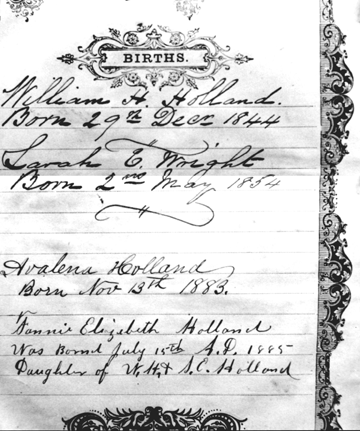 BIRTHS.
William H. Holland.
Born 29th Decr 1844
Sarah E. Wright
Born 2nd May 1854
Avalena Holland
Born Nov 13th 1883.
Fannie Elizabeth Holland
Was Bornd July 15th A.D. 1885
Daughter of W.H. & S.E. Holland